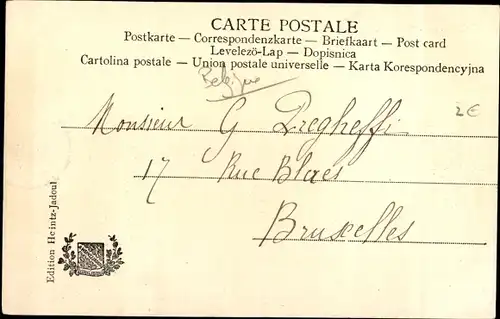 CARTE POSTALE
Postkarte — Correspondenzkarte — Briefkaart — Post card
Levelező-Lap — Dopisnica
Cartolina postale — Union postale universelle — Karta Korespondencyjna
Belgique
2€
Monsieur G Dregheffi
17 Rue Blaes
Bruxelles
Edition Heintz-Jadoul